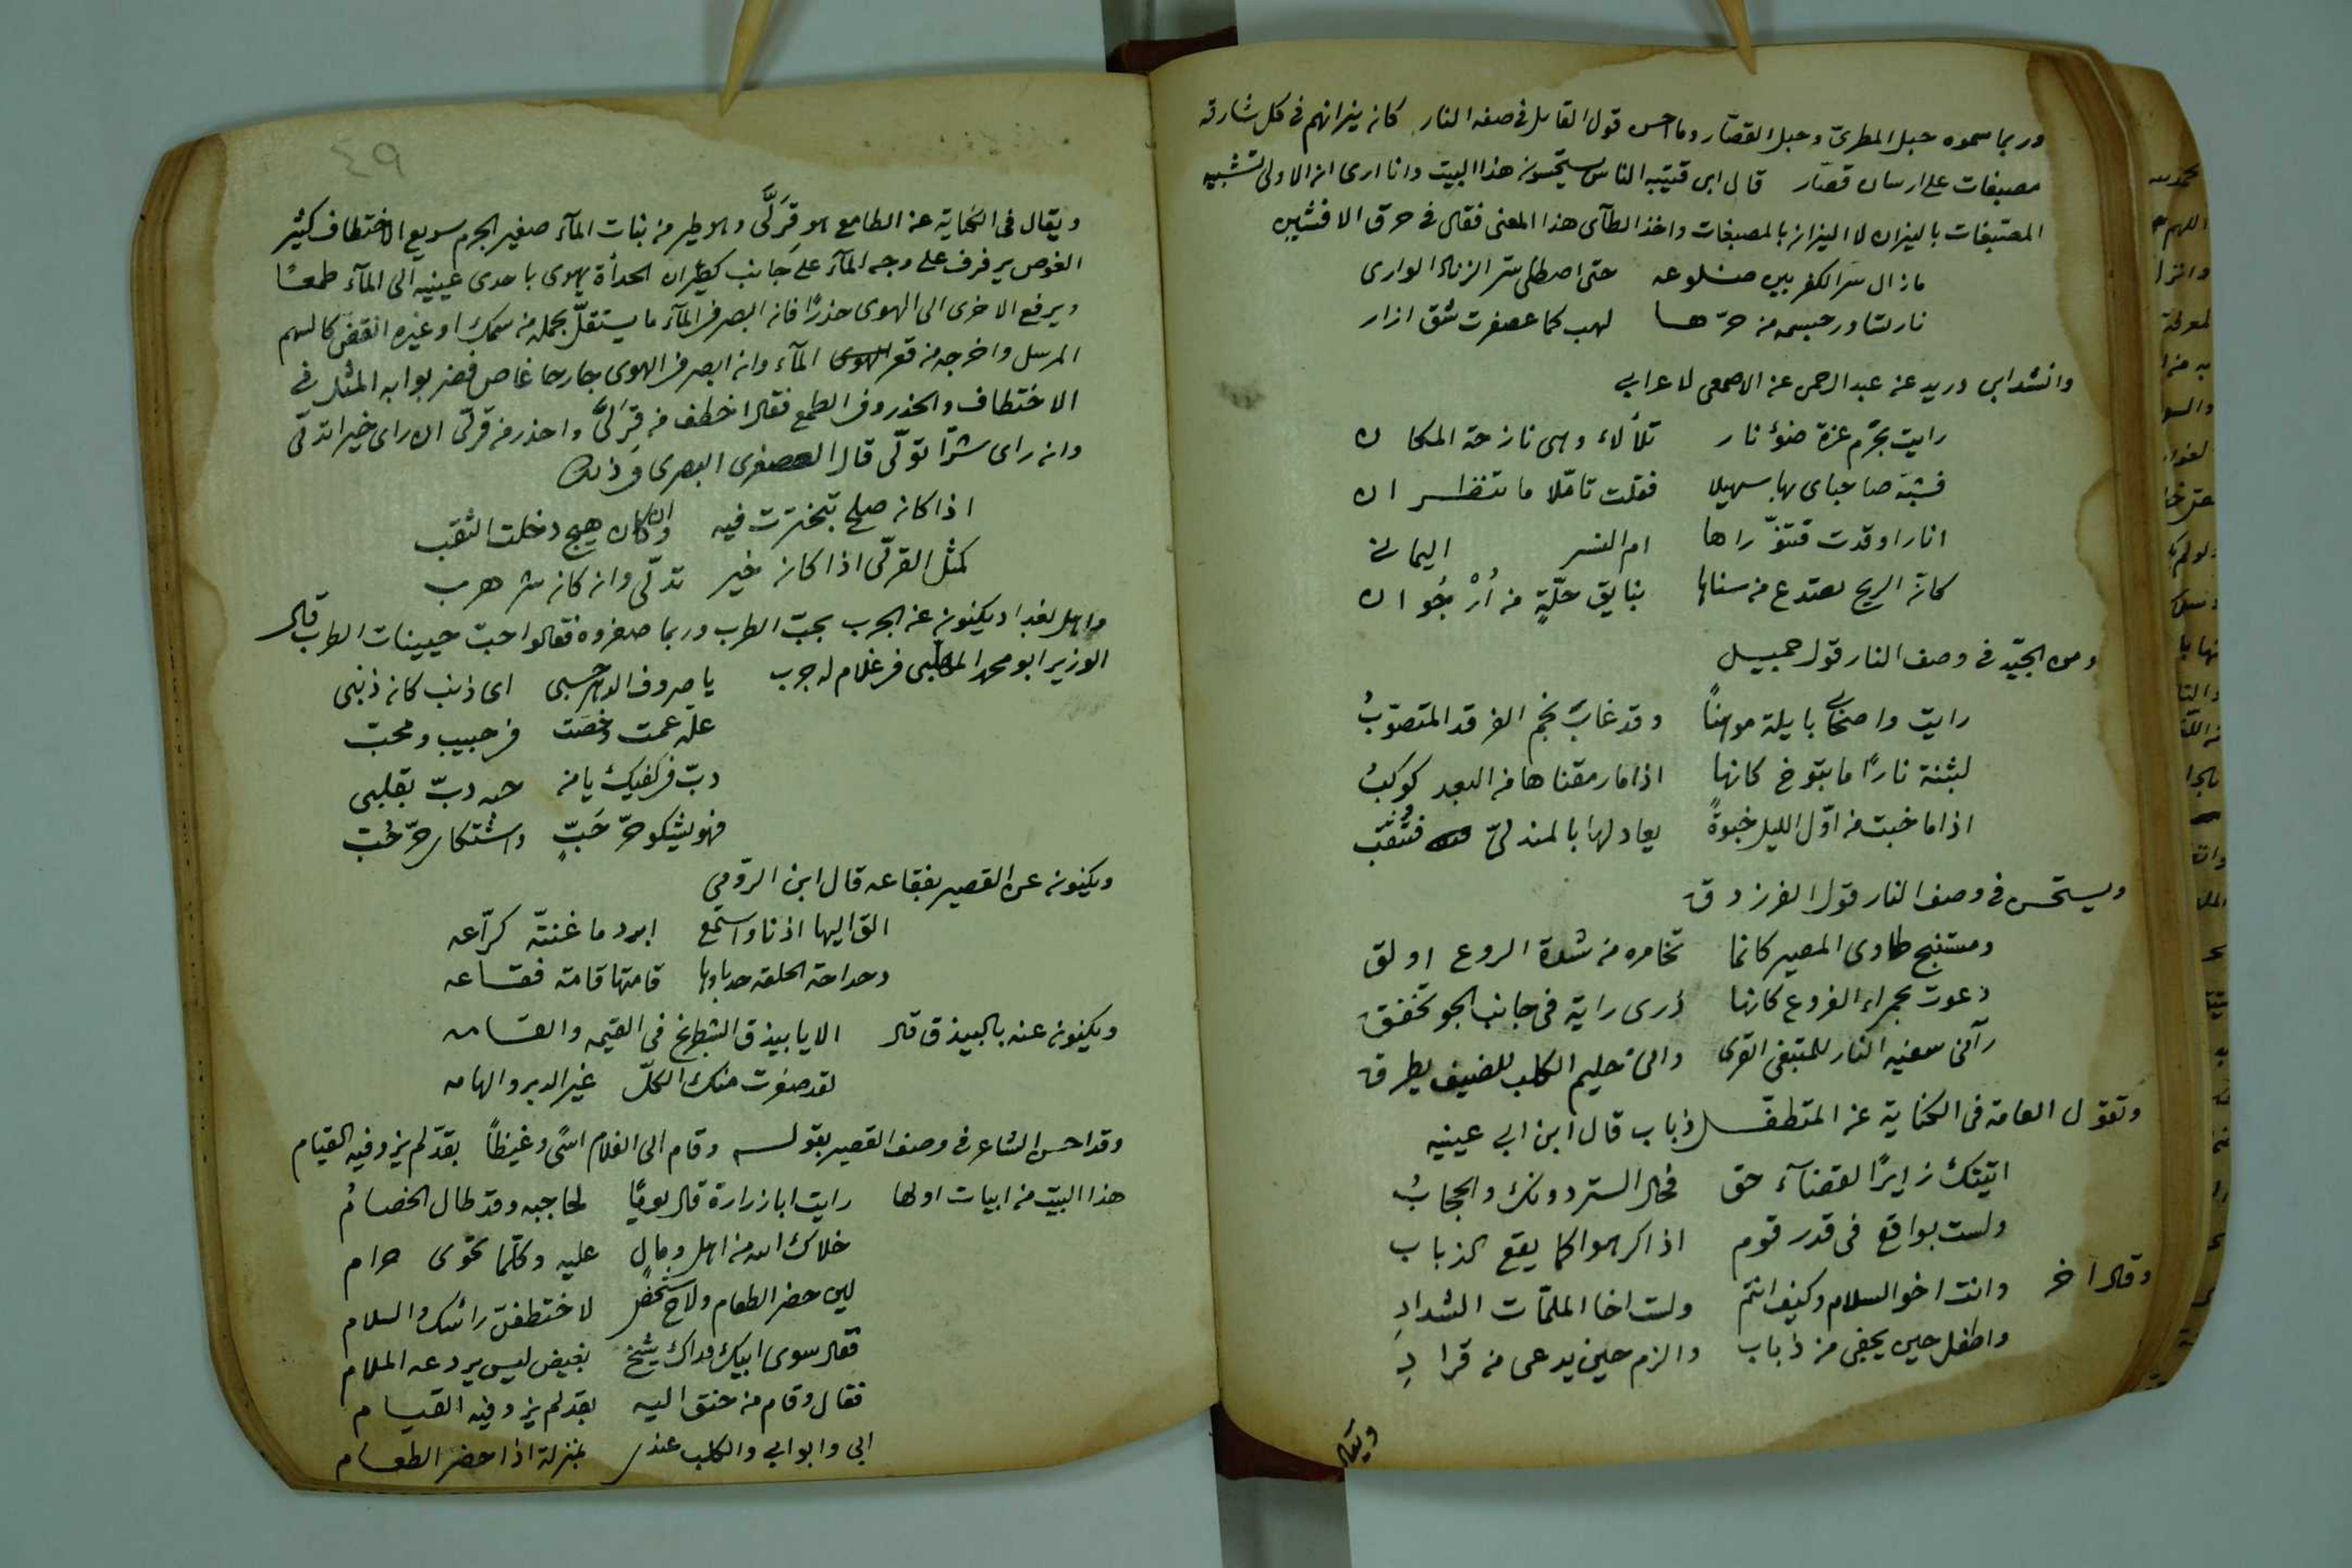 وربما سموه حبل المطرىّ وحبل القصّار وما احسن قول القايل فى صفه النار كان نيرانهم فى كل شارقه
مصبغات على ارسان قصّار قال ابن قتيبه الناس يستحسنون هذا البيت وانا ارى ان الاولى تشبيه
المصبغات بالنيران لا النيران بالمصبغات واخذ الطآى هذا المعنى فقال فى حرق الافشين
ما زال سر الكفر بين ضلوعه حتى اصطلى سر الزناد الوارى
نار تساور جسمه من حرّها لهب كما عصفرت شق ازار
وانشد ابن دريد عن عبد الرحمن عن الاصمعى لاعرابي
رايت بحزم عزة ضوء نار تلألاء وهى نازحة المكان
فشبّه صاحباى بها سهيلا فقلت تامّلا ما تنظران
انارا اوقدت فتنوّراها ام اليمانى
كان الريح من سناها بنايق حلّةٍ من اُرْجُوان
ومن الجيّد فى وصف النار قول جميل
رايت واصحابي بايلة موهنًا وقد غاب نجم الفرقد المتصوّبُ
لبثنة نارًا ما تبوخ كانها اذا ما رمقناها من البعد كوكبُ
اذا ما خبت من اوّل الليل خبوةً يعاد لها بالمندلىّ فتُثقبُ
ويستحسن فى وصف النار قول الفرزدق
ومستنبح طاوى المصير كانما تخامره من شدة الروع اولق
دعوت بحمراء الفروع كانها ذرى راية فى جانب الجو تخفق
والى حليم الكلب للضيف يطرق
وتقول العامة فى الكناية عن المتطفّل ذباب قال ابن ابي عيينه
اتيتك زايرًا لقضآء حق فحال الستر دونك والحجابُ
ولست بواقع فى قدر قوم اذا كرهوا كما يقع الذباب
وقال اخر وانت اخو السلام وكيف انتم ولست اخا الملمّات الشدادِ
واطفل حين يجفى من ذباب والزم حين يدعى من قرادِ
ويقال
٤٩
ويقال فى الكناية عن الطامع هو قِرَلَّى وهو طير من بنات المآء صغير الجرم سريع الاختطاف كثير
الغوص يرفرف على وجه المآء على جانب كطيران الحدأة يهوى باحدى عينيه الى المآء طمعًا
ويرفع الاخرى الى الهوى حذرًا فان ابصر فى المآء ما يستقلّ بحمله من سمك او غيره انقضّ كالسهم
المرسل واخرجه من قعر المآء وان ابصر فى الهوى جارحا غاص فضربوا به المثل فى
الاختطاف والحذر وفى الطمع فقال اخطف من قِرَلَّى واحذر من قرلّى ان راى خيرا تدلّى
وان راى شرّا تولّى قال البصرى فى ذلك
اذا كان صلح تبخترت فيه وان كان هيج دخلت الثقب
كمثل القرلّى اذا كان خير تدلّى وان كان شر هرب
واهل بغداد يكنون عن الجرب بحبّ الطرب وربما صغروه فقالوا حبيبات الطرب قال
الوزير ابو محمد المهلّبى فى غلام له جرب يا صروف الدهر حسبى اى ذنب كان ذنبى
علّة عمت وخصّت فى حبيب ومحبّ
دبّ فى كفيك يا من حبه دبّ بقلبى
فهو يشكو حرّ حَبٍّ واشتكاى حرّ حُبّ
ويكنون عن القصير بفقاعه قال ابن الرومي
الق اليها اذنا واستمع ابرد ما غنته كرّاعه
دحداحة الخلقه قامتها قامة فقاعه
ويكنون عنه بالبيذق قال الا يا بيذق الشطرنج فى القيمه والقامه
لقد صغرت منك الكلّ غير الدبر والهامه
وقد احسن الشاعر فى وصف القصير بقوله وقام الى الغلام اسًى وغيظًا بقدّ لم يزد فيه القيام
هذا البيت من ابيات اولها رايت ابا زرارة قال يومًا لحاجبه وقد طال الخصامُ
خلاك الله من اهل ومال عليه وكلما تحوى حرام
لين حضر الطعام ولاح شخص لاختطفن راسك والسلام
فقال سوى ابيك فداك شيخ بغيض ليس يردعه الملام
فقال وقام من حنق اليه بقد لم يزد فيه القيام
ابي وابوابي والكلب عندى بمنزلة اذا حضر الطعام